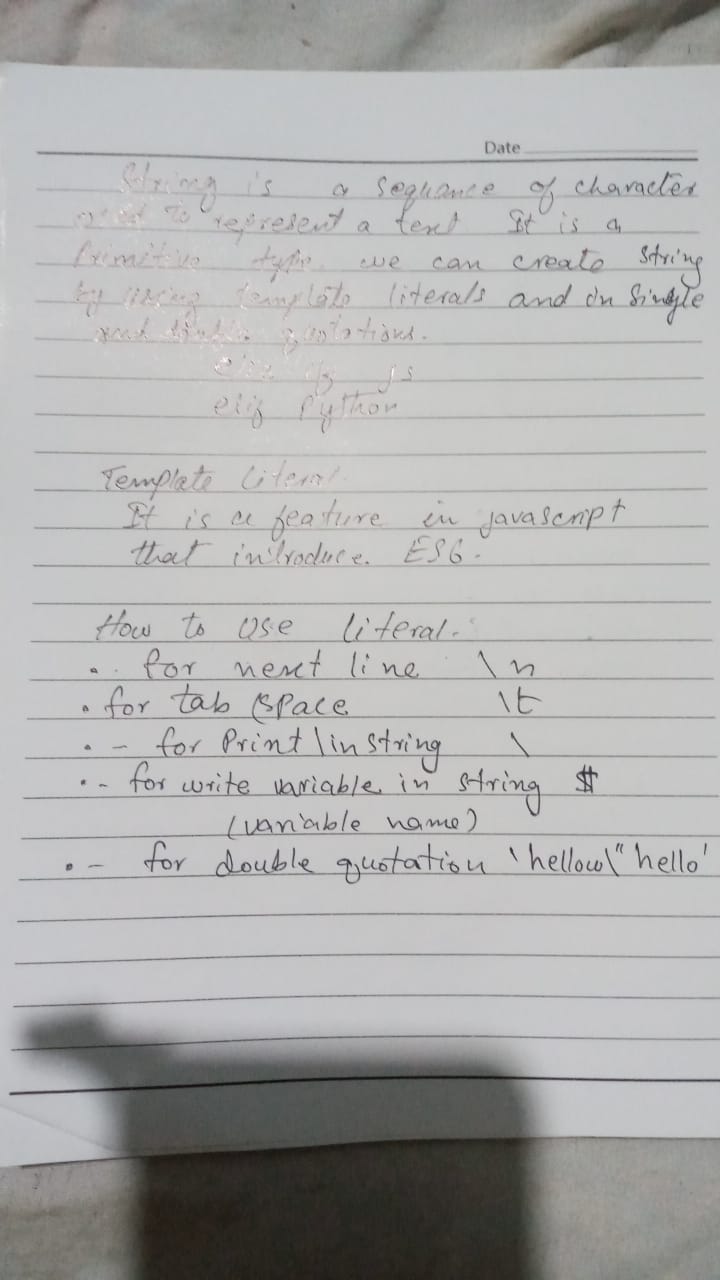 Date
String is a sequance of character
used to represent a text It is a
Primitive type. we can create string
by using template literals and in Single
and double quotations.
in JS
elif Python
Template literal
It is a feature in javascript
that introduce. ES6.
How to Use literal.
• for next line \n
• for tab (space \t
• - for Print \ in string \
• - for write variable in string $
(variable name)
• - for double quotation 'hellow\" hello'